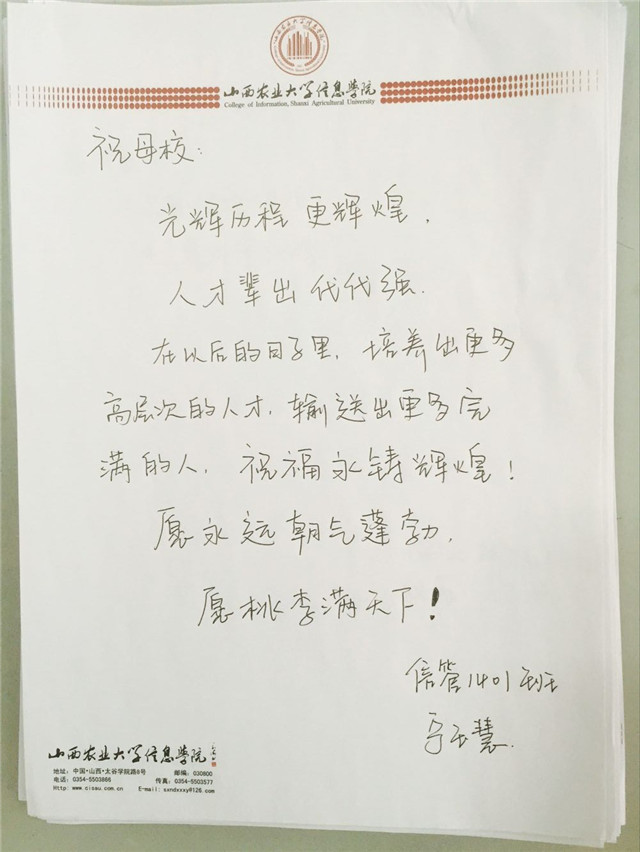 山西农业大学信息学院
College of Information, Shanxi Agricultural University
祝母校:
光辉历程更辉煌,
人才辈出代代强.
在以后的日子里,培养出更多
高层次的人才,输送出更多完
满的人,祝福永铸辉煌!
愿永远朝气蓬勃,
愿桃李满天下!
信管1401班
玉慧.
山西农业大学信息学院
地址:中国·山西·太谷学院路8号 邮编:030800
电话:0354-5503866 传真:0354-5503577
Http:www.cisau.com.cn E-mail:sxndxxxy@126.com